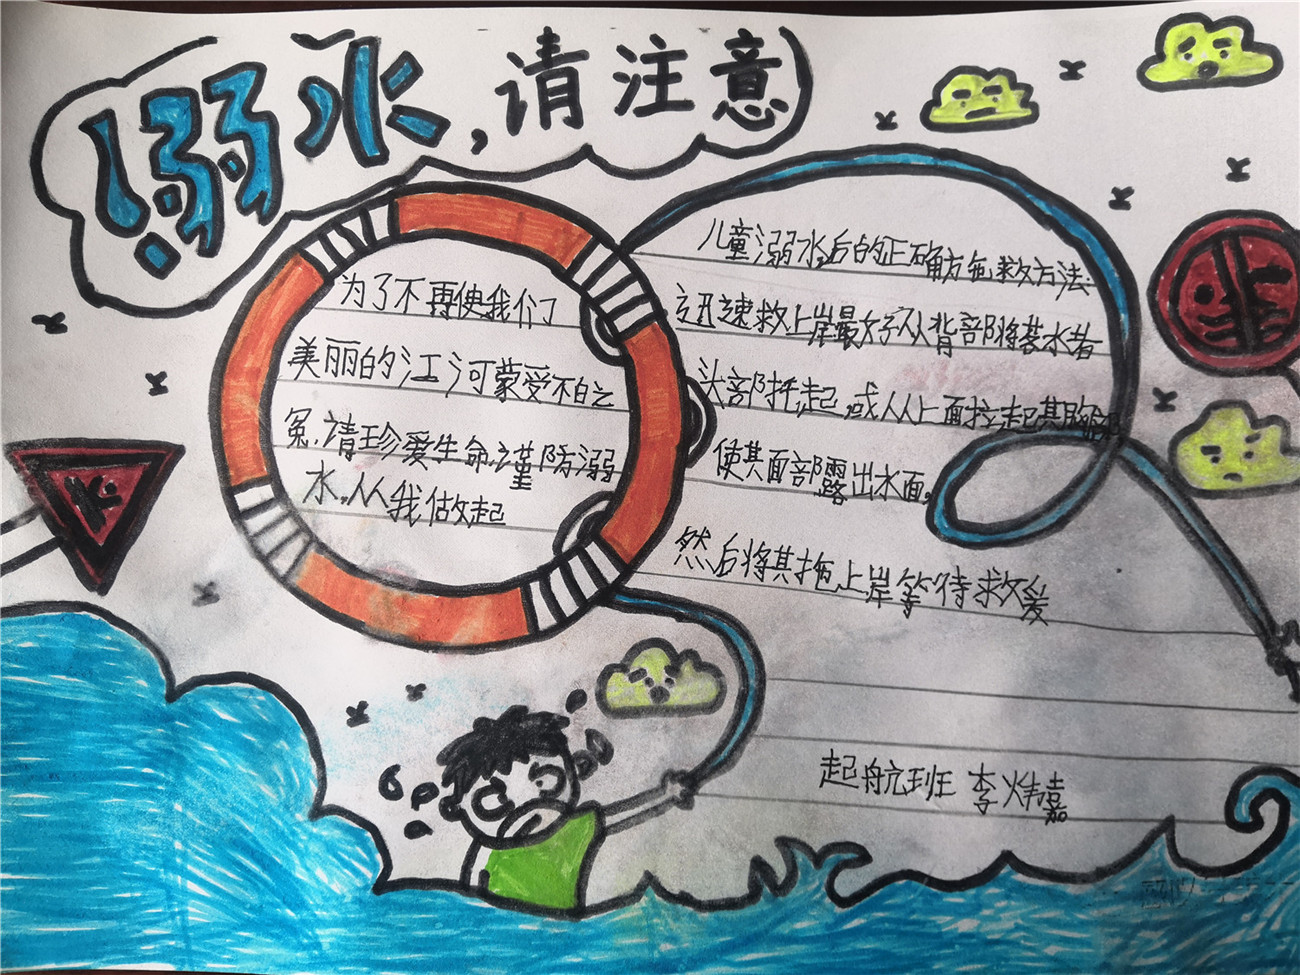 !溺水,请注意
为了不再使我们
美丽的江河蒙受不白之
冤,请珍爱生命,谨防溺
水。从我做起
儿童溺水后的正确方色救方法:
迅速救上岸最好从背部将落水者
头部托起,或从上面拉起其胸部
使其面部露出水面。
然后将其拖上岸等待救爰
起航班 李炜嘉